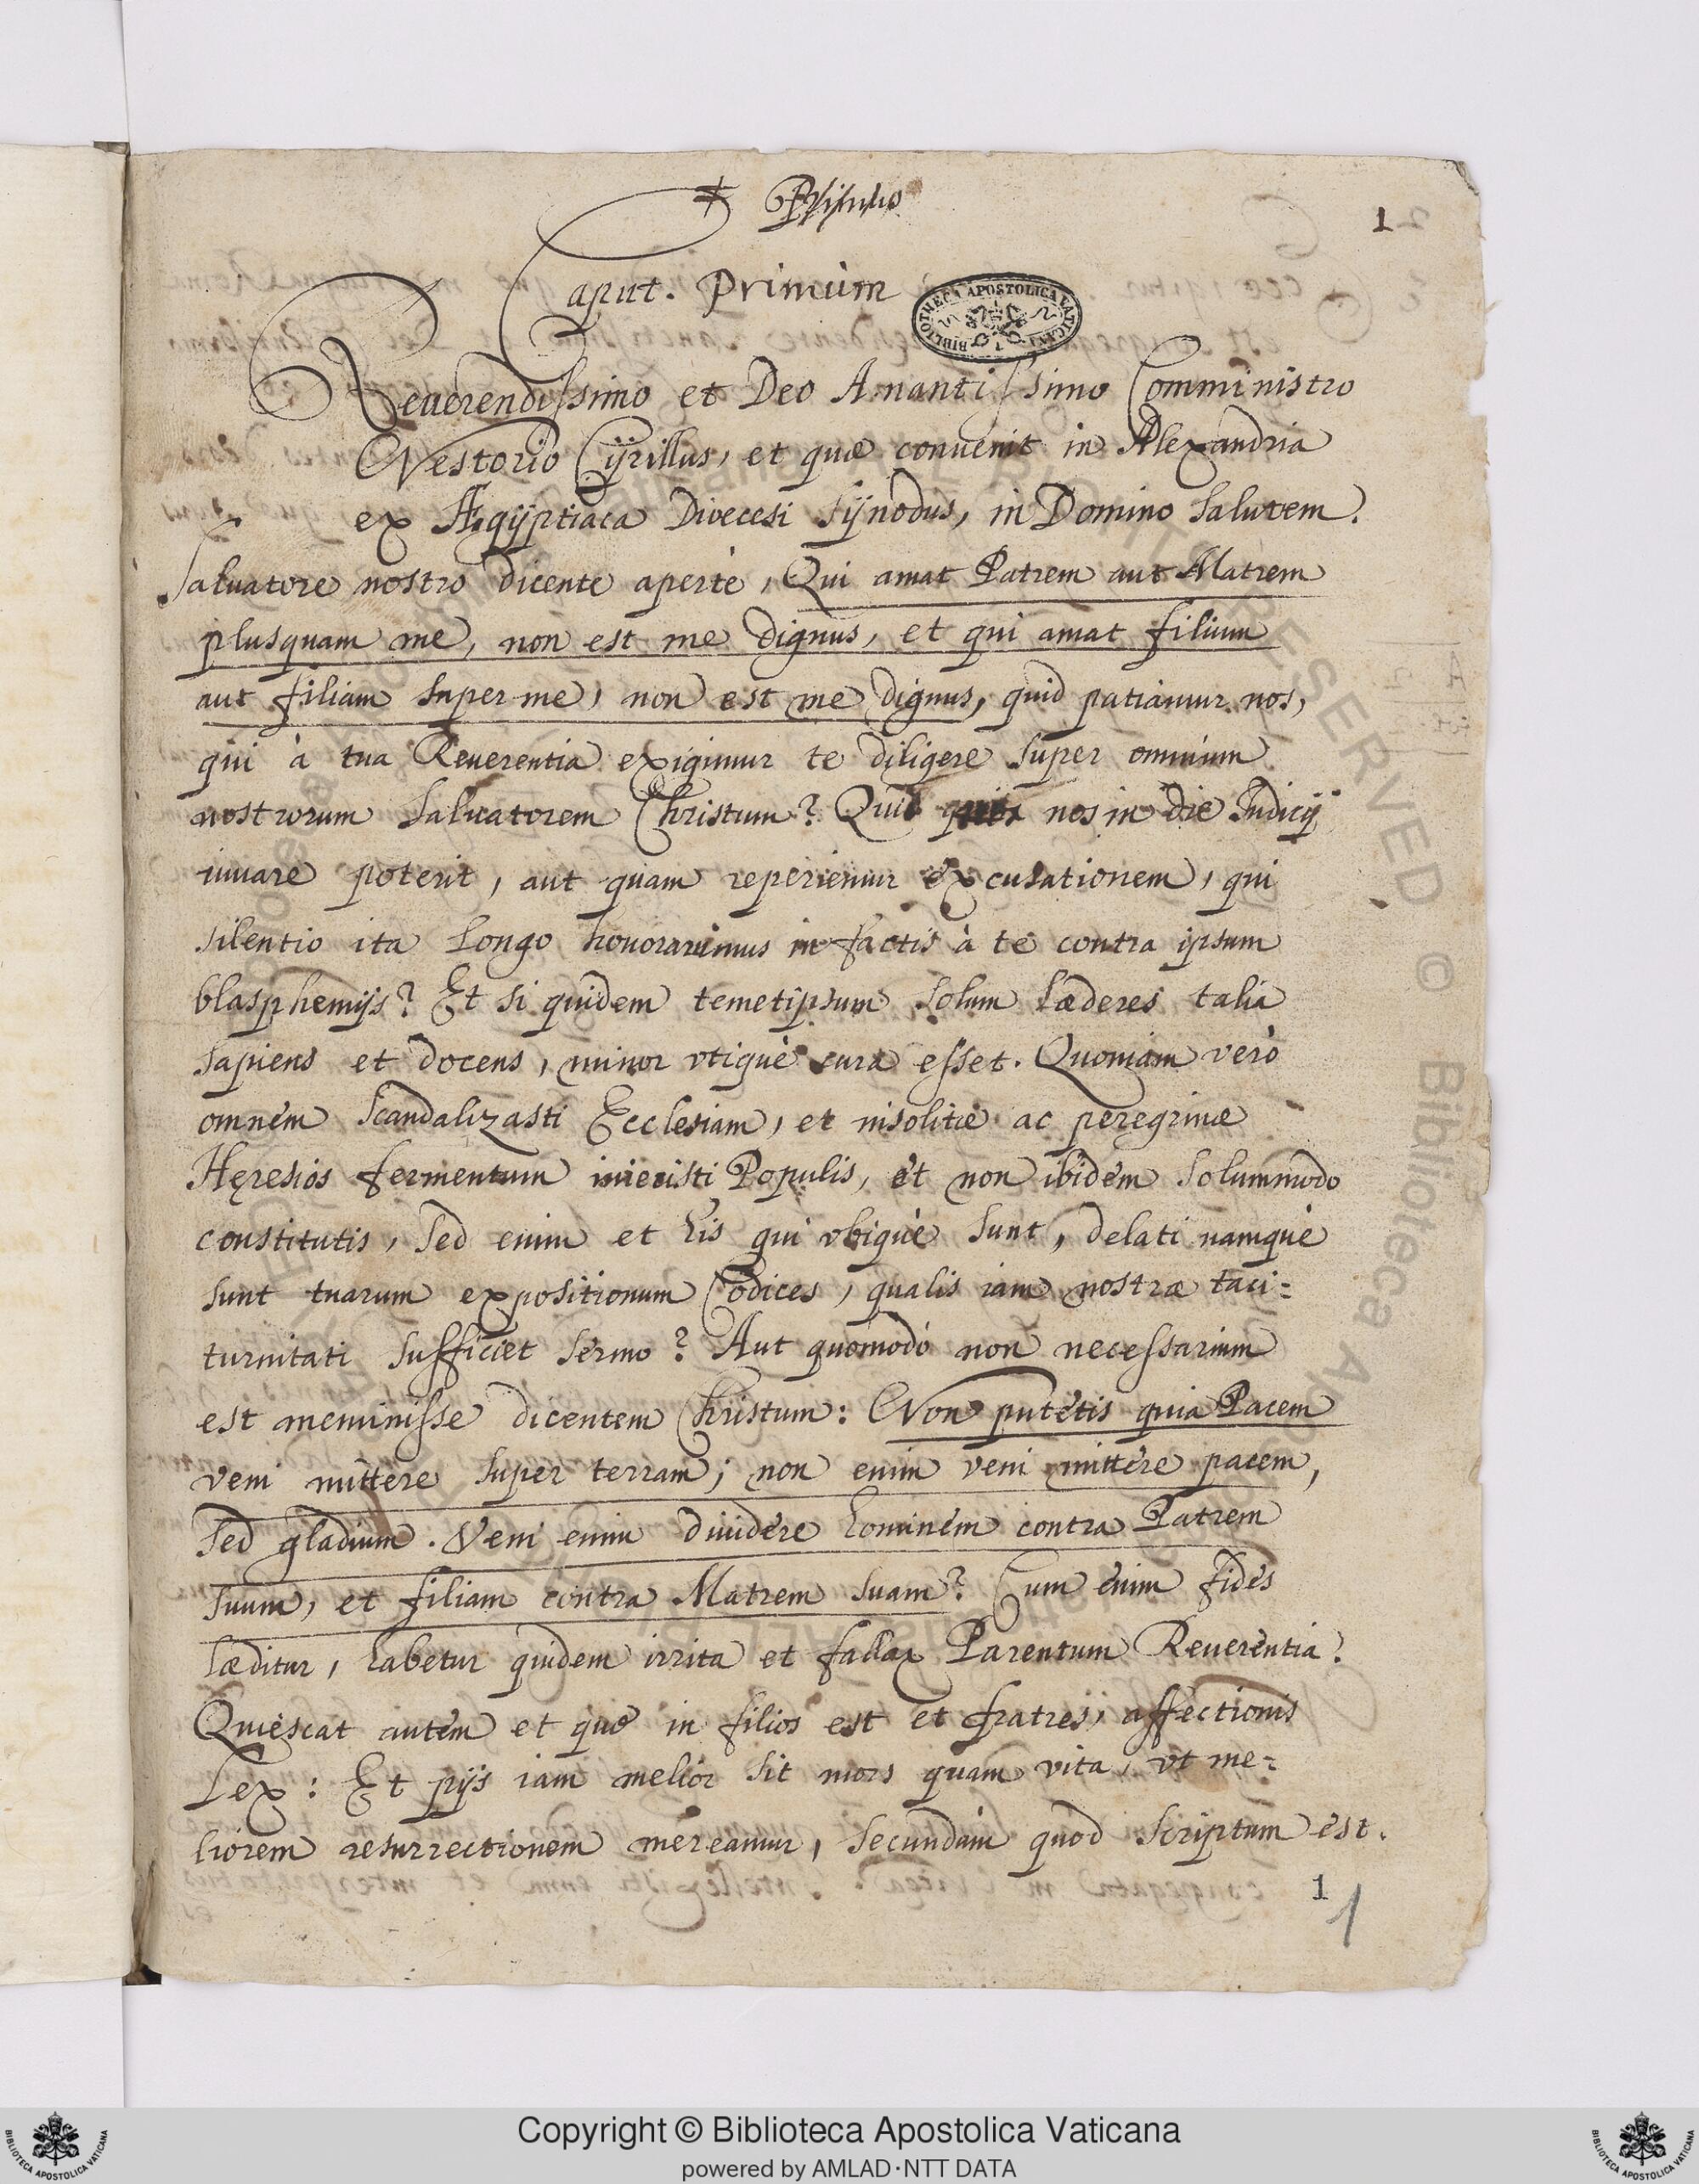 1
Caput. Primùm
BIBLIOTHECA APOSTOLICA VATICANA
Reuerendissimo et Deo Amantissimo Comministro
Nestorio Cÿrillus, et quæ conuenit in Alexandria
ex Ægÿptiaca Diœcesi Sÿnodus, in Domino Salutem.
Saluatore nostro dicente apertè, Qui amat Patrem aut Matrem
plusquam me, non est me dignus, et qui amat filium
aut filiam super me, non est me dignus, quid patiamur nos,
qui à tua Reuerentia exigimur te diligere super omnium
nostrorum Saluatorem Christum? Quis nos in die Iudicij
iuuare poterit, aut quam reperiemur excusationem, qui
silentio ita longo honorauimus in factis à te contra ipsum
blasphemijs? Et si quidem temetipsum solum læderes talia
sapiens et docens, minor vtiquè cura esset. Quoniam verò
omnem scandalizasti Ecclesiam, et insolitæ ac peregrinæ
Hęresios fermentum iniecisti Populis, et non ibidem solummodo
constitutis, sed enim et his qui vbiquè sunt, delati namquè
sunt tuarum expositionum Codices, qualis iam nostræ taci=
turnitati sufficiet sermo? Aut quomodò non necessarium
est meminisse dicentem Christum: Non putetis quia Pacem
veni mittere super terram; non enim veni mittere pacem,
sed gladium. Veni enim diuidere hominem contra Patrem
suum, et filiam contra Matrem suam? Cum enim fides
læditur, habetur quidem irrita et fallax Parentum Reuerentia.
Quiescat autem et quæ in filios est et fratres, affectionis
Lex: Et pijs iam melior sit mors quam vita, vt me=
liorem resurrectionem mereamur, secundùm quod scriptum est.
1
1
Copyright © Biblioteca Apostolica Vaticana
powered by AMLAD·NTT DATA